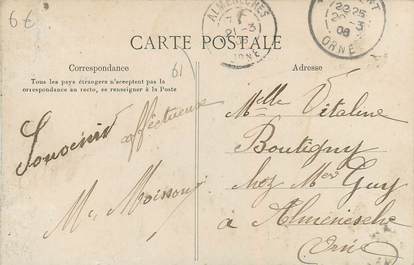 6€
ALMENÊCHES
21 -3
ORNE
22 25
20 -3
06
ORNE
CARTE POSTALE
Correspondance
Tous les pays étrangers n'acceptent pas la
correspondance au recto, se renseigner à la Poste
61
Adresse
Souvenir affectueux
M. Moisson
Melle Vitaline
Boutigny
chez Mer Guy
à Almenesche
Orne